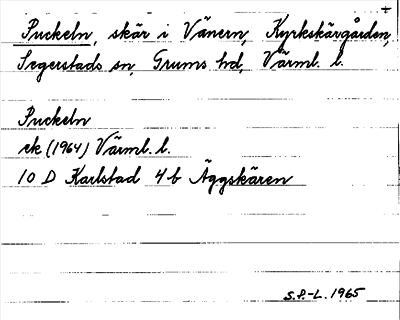 +
Puckeln, skär i Vänern, Kyrkskärgården,
Segerstads sn, Grums hd, Värml. l.
Puckeln
ek (1964) Värml. l.
10 D Karlstad 4 b Äggskären
S.P.-L. 1965